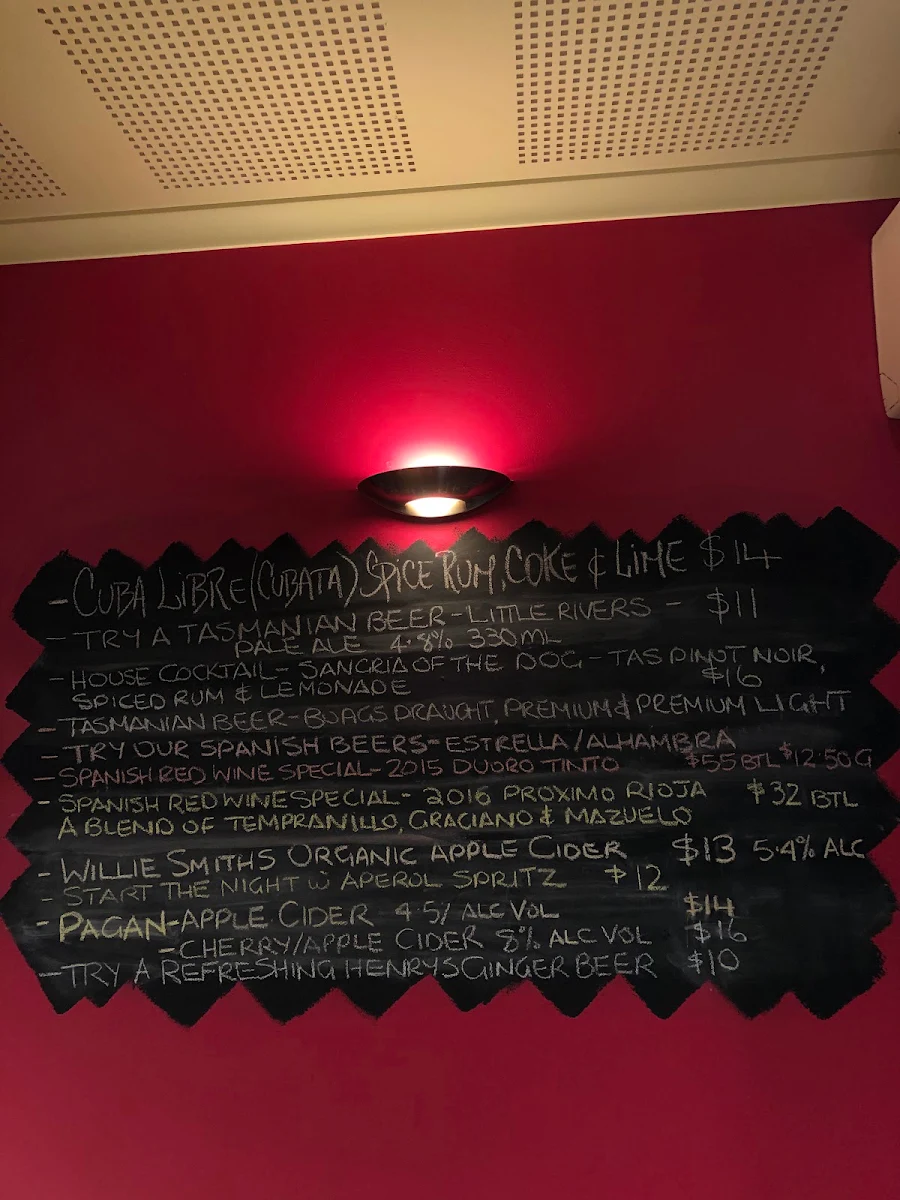 - CUBA LIBRE (CUBATA) SPICE RUM, COKE & LIME $14
- TRY A TASMANIAN BEER - LITTLE RIVERS - $11
PALE ALE 4.8% 330ML
- HOUSE COCKTAIL - SANGRIA OF THE DOG - TAS PINOT NOIR,
SPICED RUM & LEMONADE $16
- TASMANIAN BEER - BOAGS DRAUGHT, PREMIUM & PREMIUM LIGHT
- TRY OUR SPANISH BEERS - ESTRELLA/ALHAMBRA
- SPANISH RED WINE SPECIAL - 2015 DUORO TINTO $55 BTL $12.50 G
- SPANISH RED WINE SPECIAL - 2016 PROXIMO RIOJA $32 BTL
A BLEND OF TEMPRANILLO, GRACIANO & MAZUELO
- WILLIE SMITHS ORGANIC APPLE CIDER $13 5.4% ALC
- START THE NIGHT W APEROL SPRITZ $12
- PAGAN - APPLE CIDER 4.5% ALC VOL $14
- CHERRY/APPLE CIDER 8% ALC VOL $16
- TRY A REFRESHING HENRYS GINGER BEER $10